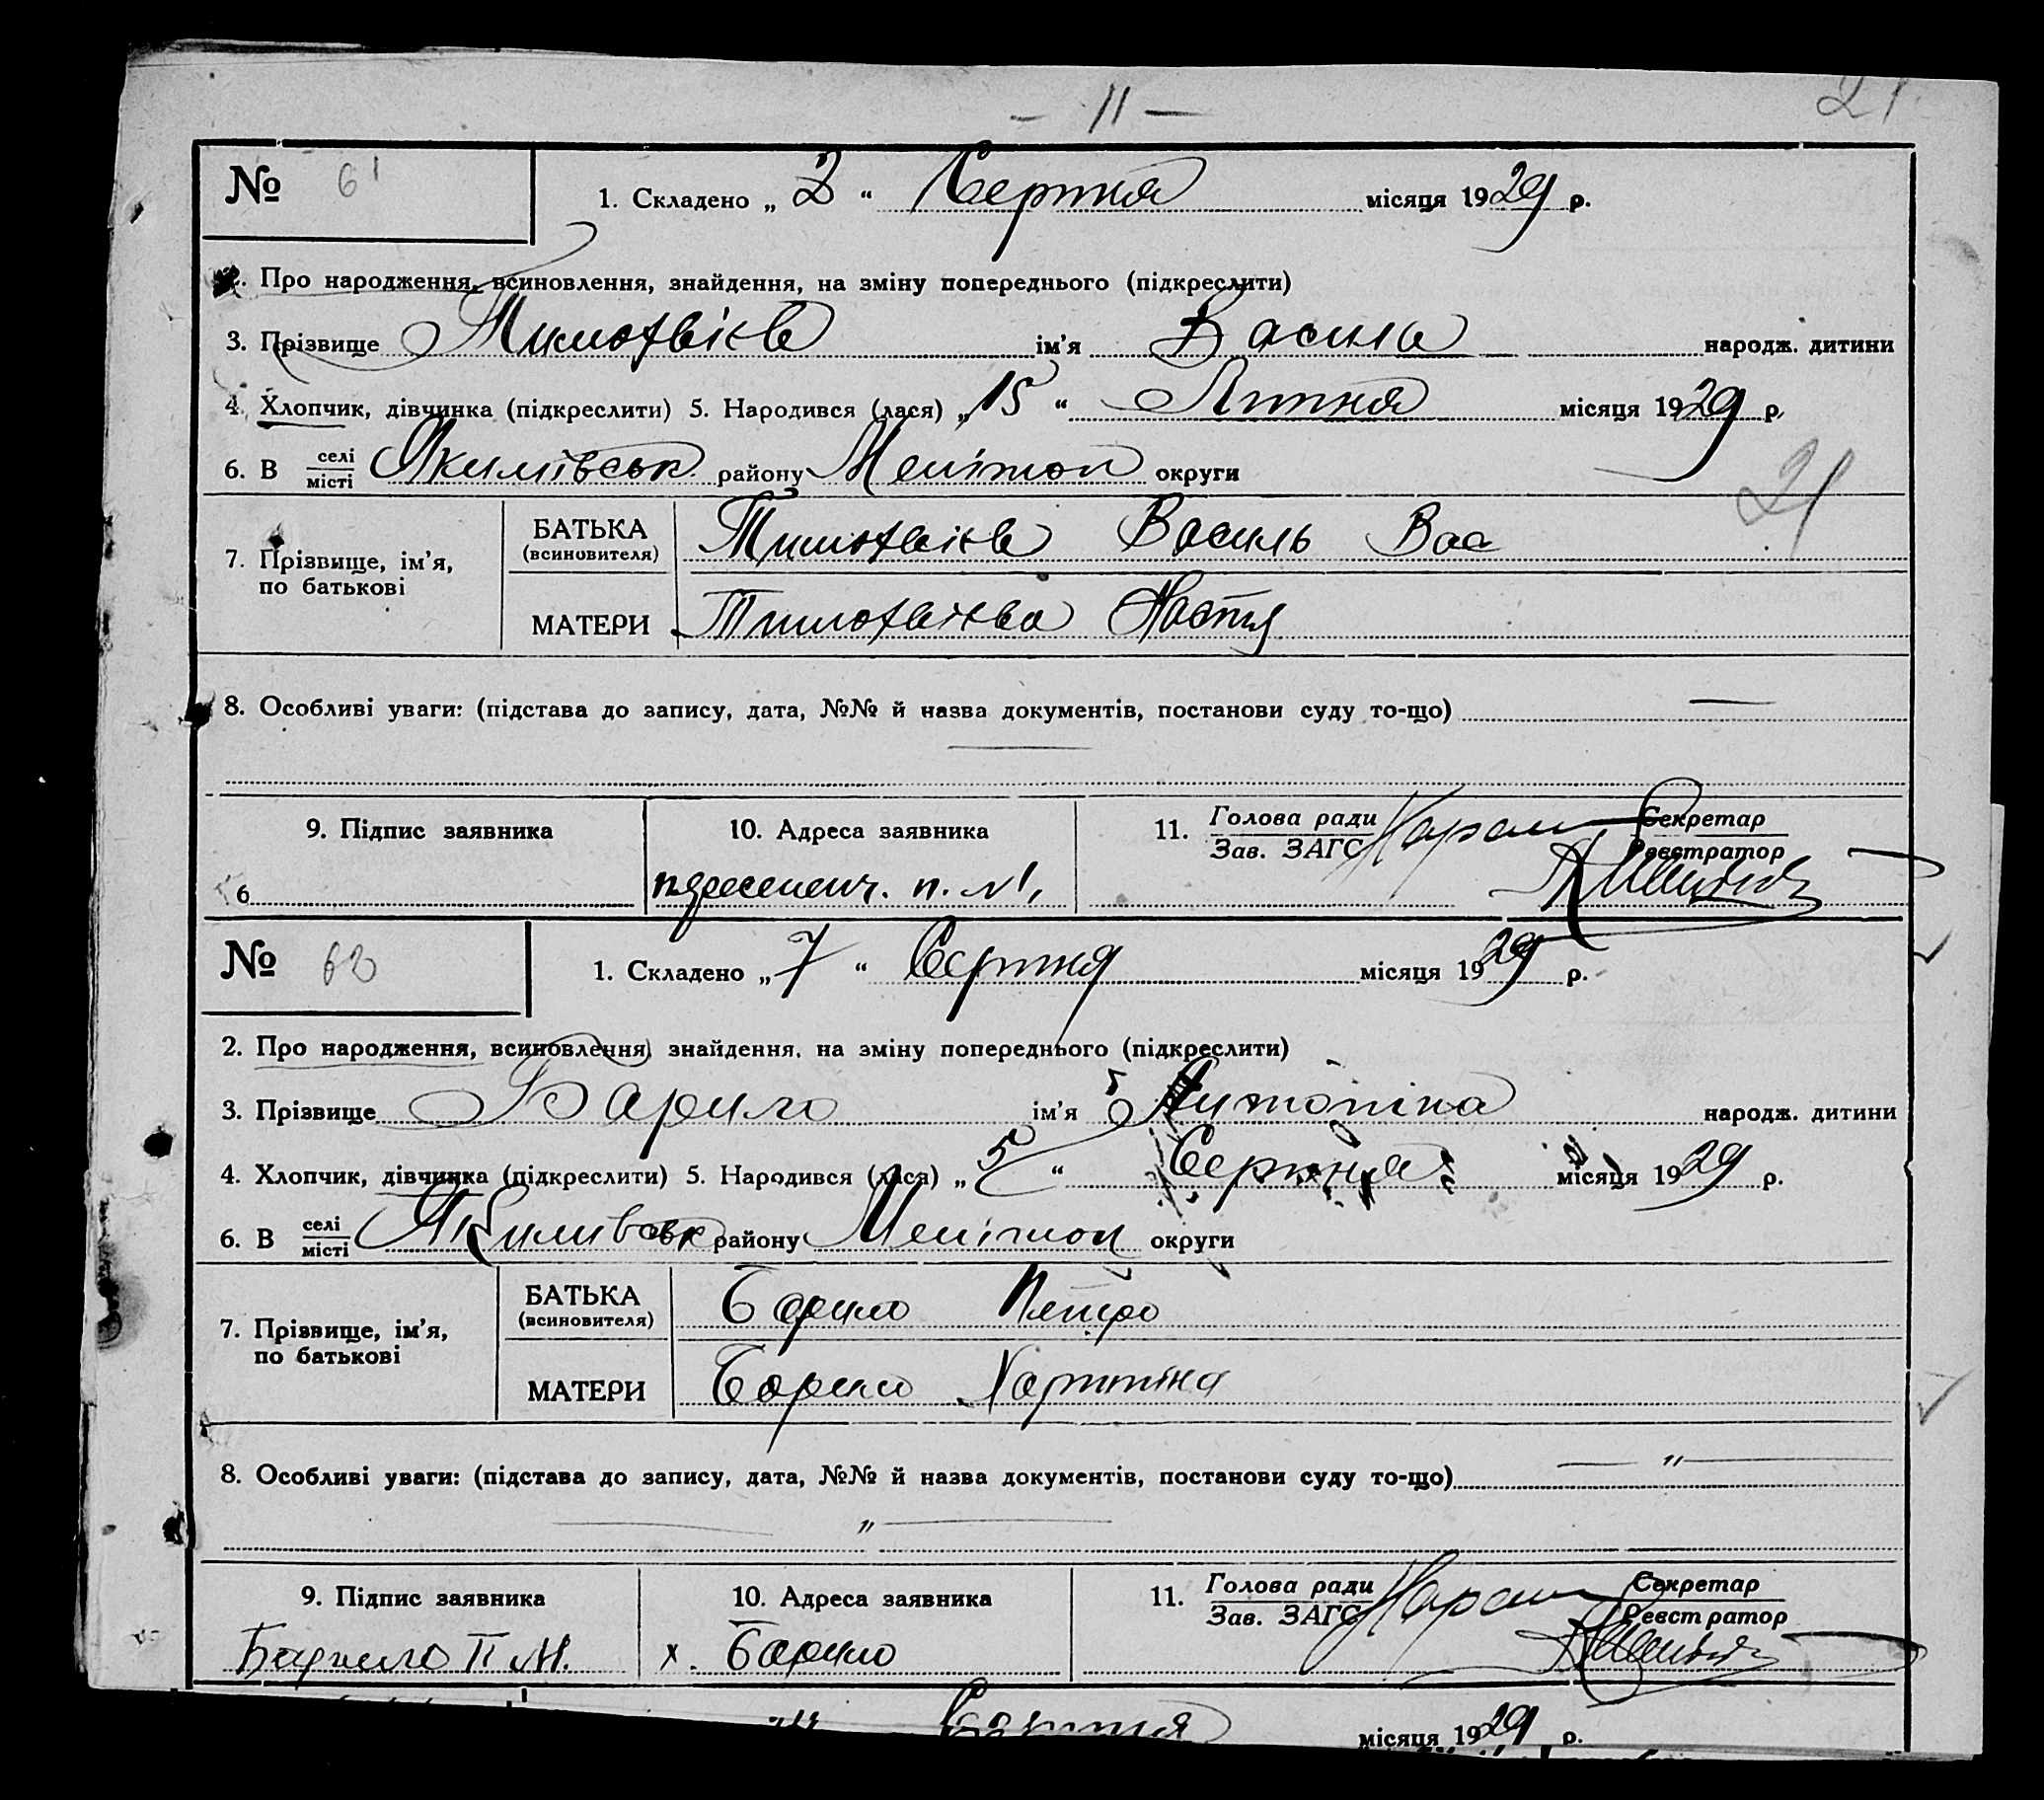 – 11 –
21
№ 61
1. Складено „ 2 “ Серпня місяця 1929 р.
2. Про народження, всиновлення, знайдення, на зміну попереднього (підкреслити)
3. Прізвище ім’я Василь народж. дитини
4. Хлопчик, дівчинка (підкреслити) 5. Народився (лася) „ 15 “ Липня місяця 1929 р.
6. В селі/місті Якимівськ. району Мелітоп округи
21
7. Прізвище, ім’я, по батькові
БАТЬКА (всиновителя) Василь Вас
МАТЕРИ Настя
8. Особливі уваги: (підстава до запису, дата, №№ й назва документів, постанови суду то-що) —
—
9. Підпис заявника
10. Адреса заявника
11. Голова ради/Зав. ЗАГС Секретар/Реєстратор
6
п. №1,
№ 62
1. Складено „ 7 “ Серпня місяця 1929 р.
2. Про народження, всиновлення, знайдення, на зміну попереднього (підкреслити)
3. Прізвище Барило ім’я Антоніна народж. дитини
4. Хлопчик, дівчинка (підкреслити) 5. Народився (лася) „ 5 “ Серпня місяця 1929 р.
6. В селі/місті Якимівськ району Мелітоп округи
7. Прізвище, ім’я, по батькові
БАТЬКА (всиновителя) Барило Петро
МАТЕРИ Барило Хартина
8. Особливі уваги: (підстава до запису, дата, №№ й назва документів, постанови суду то-що) — " —
— " —
9. Підпис заявника
10. Адреса заявника
11. Голова ради/Зав. ЗАГС Секретар/Реєстратор
Барило П М.
х. Барило
Серпня місяця 1929 р.